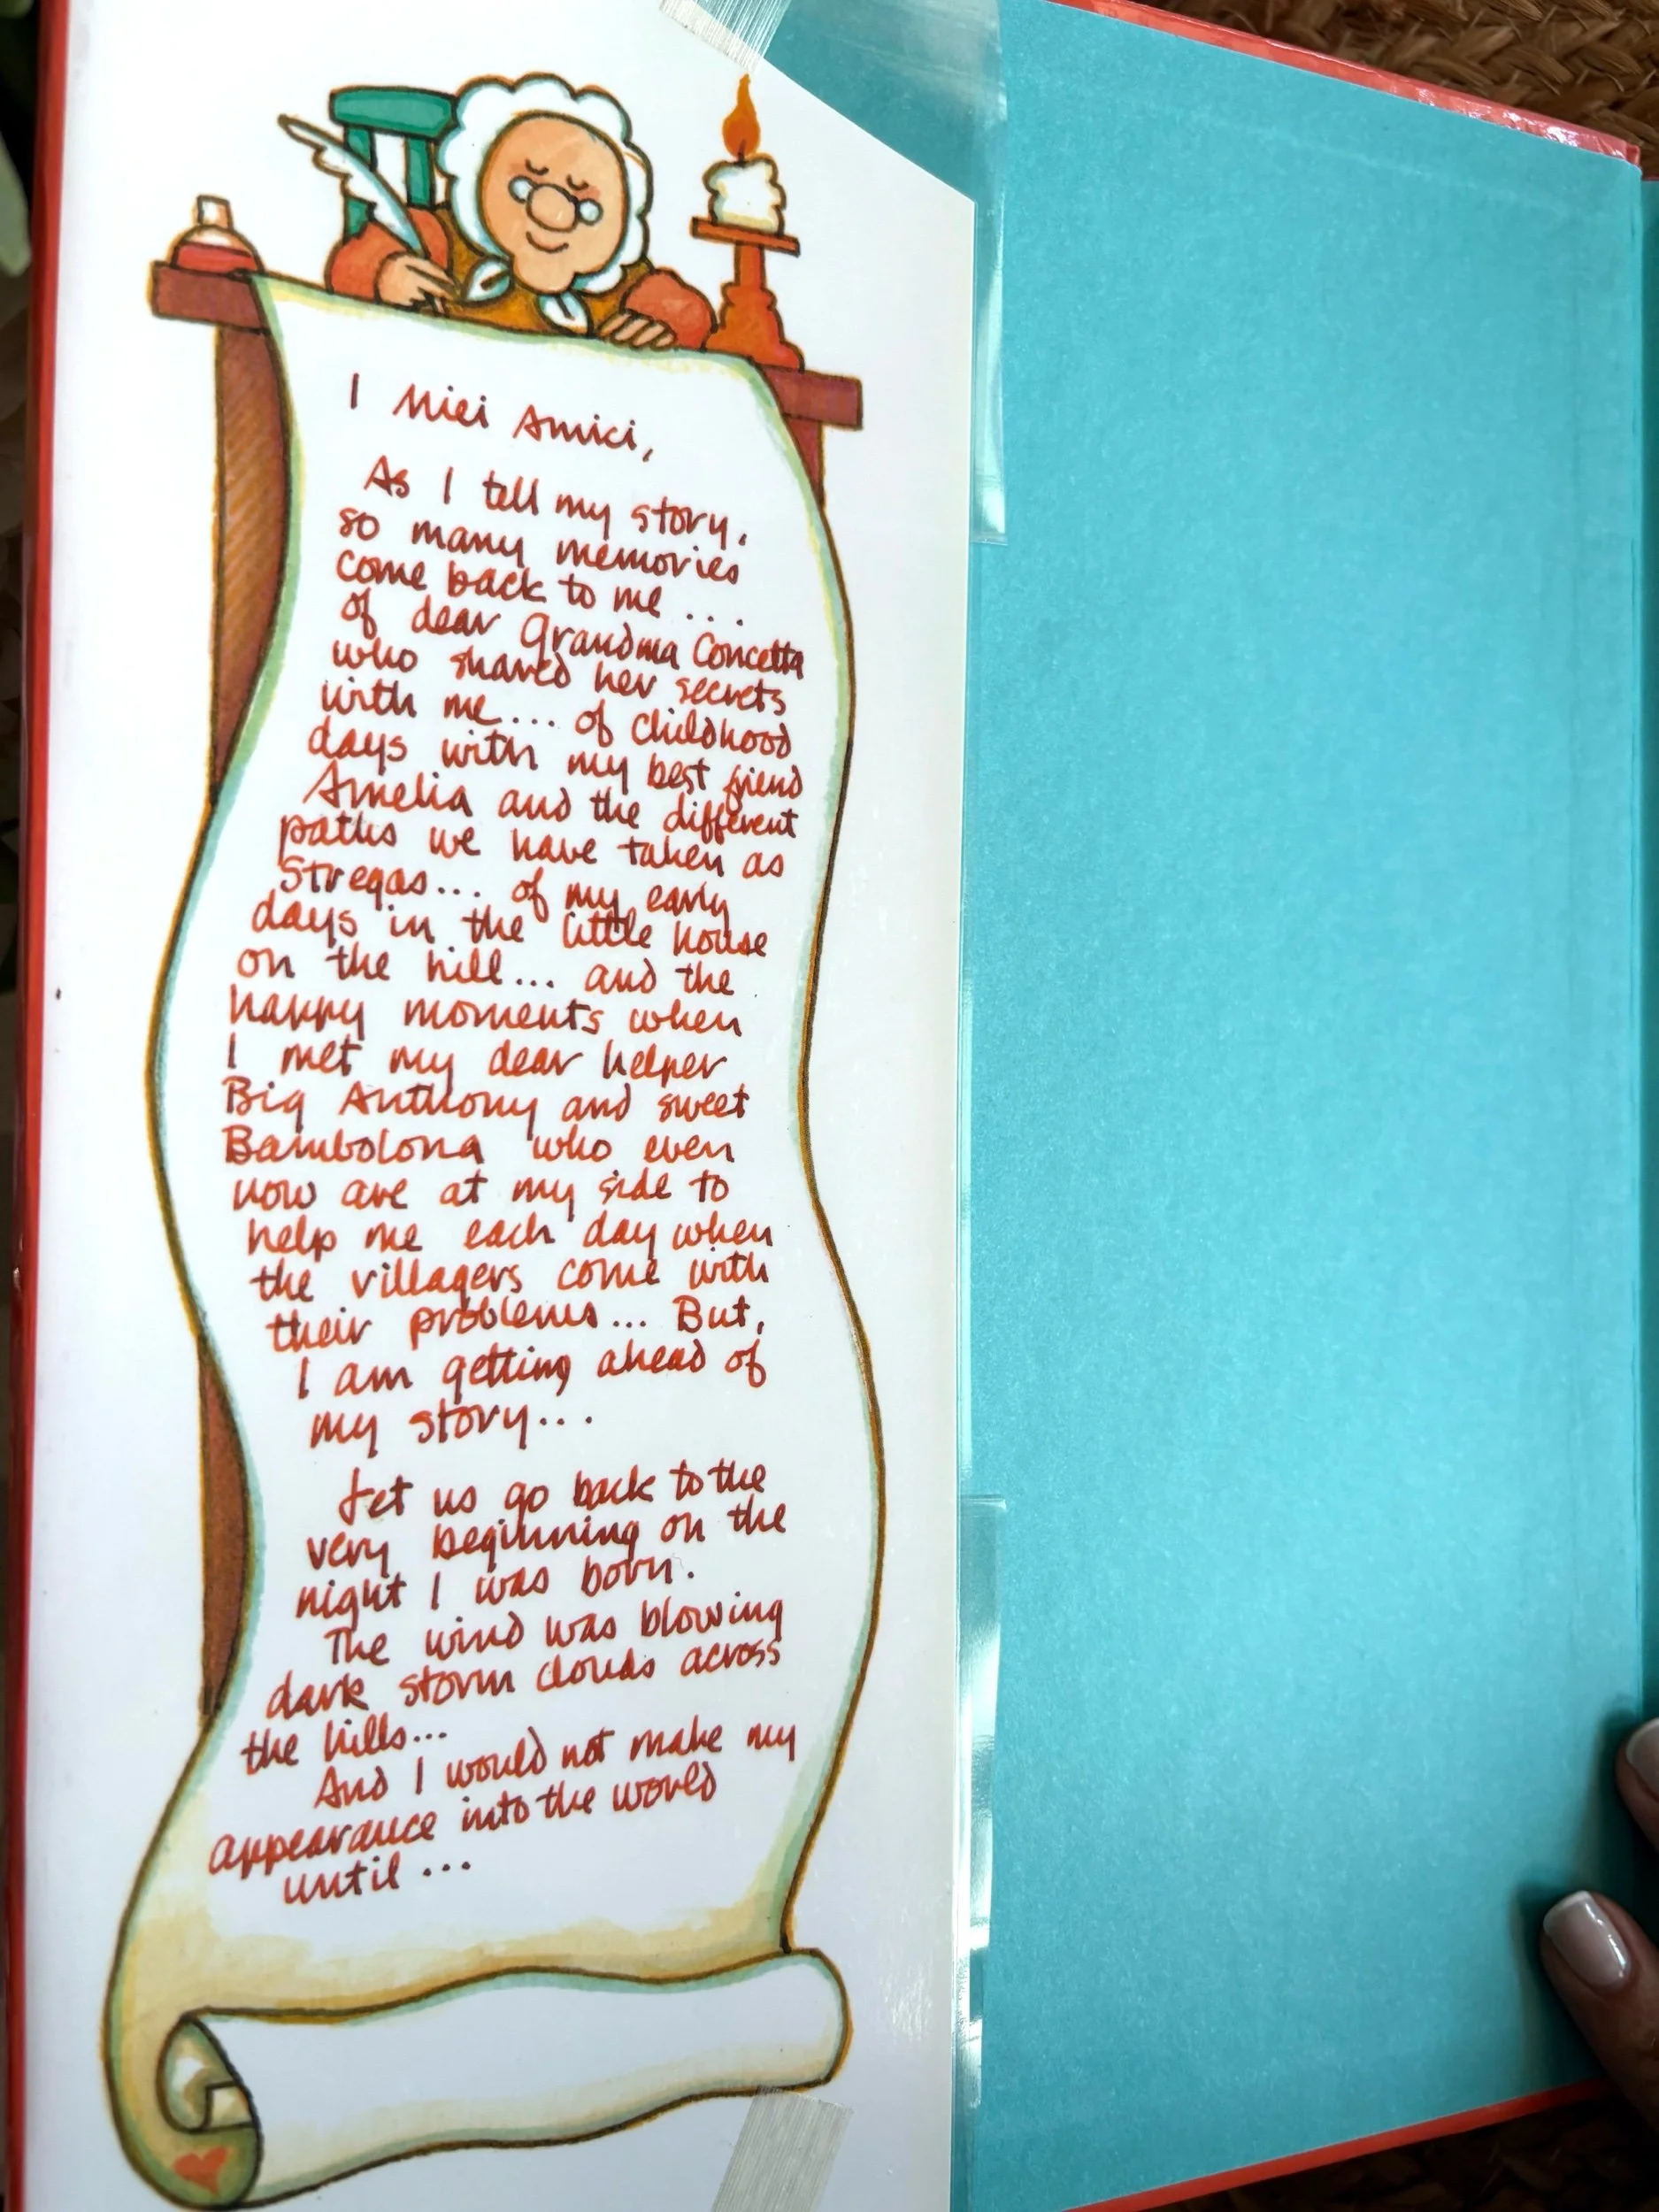 I Miei Amici,
As I tell my story,
so many memories
come back to me ....
of dear Grandma Concetta
who shared her secrets
with me... of childhood
days with my best friend
Amelia and the different
paths we have taken as
Stregas... of my early
days in the little house
on the hill... and the
happy moments when
I met my dear helper
Big Anthony and sweet
Bambolona who even
now are at my side to
help me each day when
the villagers come with
their problems... But,
I am getting ahead of
my story...
Let us go back to the
very beginning on the
night I was born.
The wind was blowing
dark storm clouds across
the hills...
And I would not make my
appearance into the world
until...